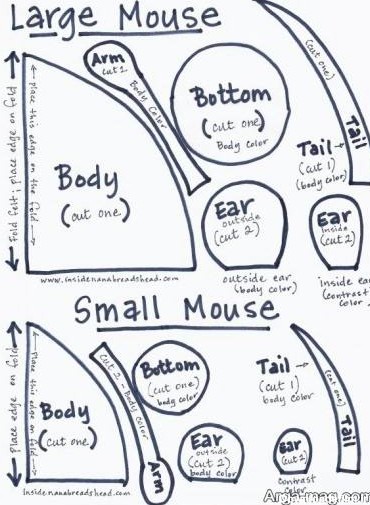 Large Mouse
Fold felt; place edge on fold
← place this edge on the fold →
Body
(cut one)
Arm
cut 2
Body color
Bottom
(cut one)
Body color
(cut one)
Tail
Tail →
(cut 1)
(body color)
Ear
outside
(cut 2)
outside ear
(body color)
Ear
inside
(cut 2)
inside ea
(contrast
color
www.insidenanabreadshead.com
Small Mouse
Place edge on fold
← Place this edge on fold →
Body
(cut one)
Cut 2 - Body color
Arm
Bottom
(cut one)
body color
Ear
outside
(cut 2)
body color
Tail →
(cut 1)
body color
(cut one)
Tail
Ear
(cut 2)
contrast
color
insidenanabreadshead.com